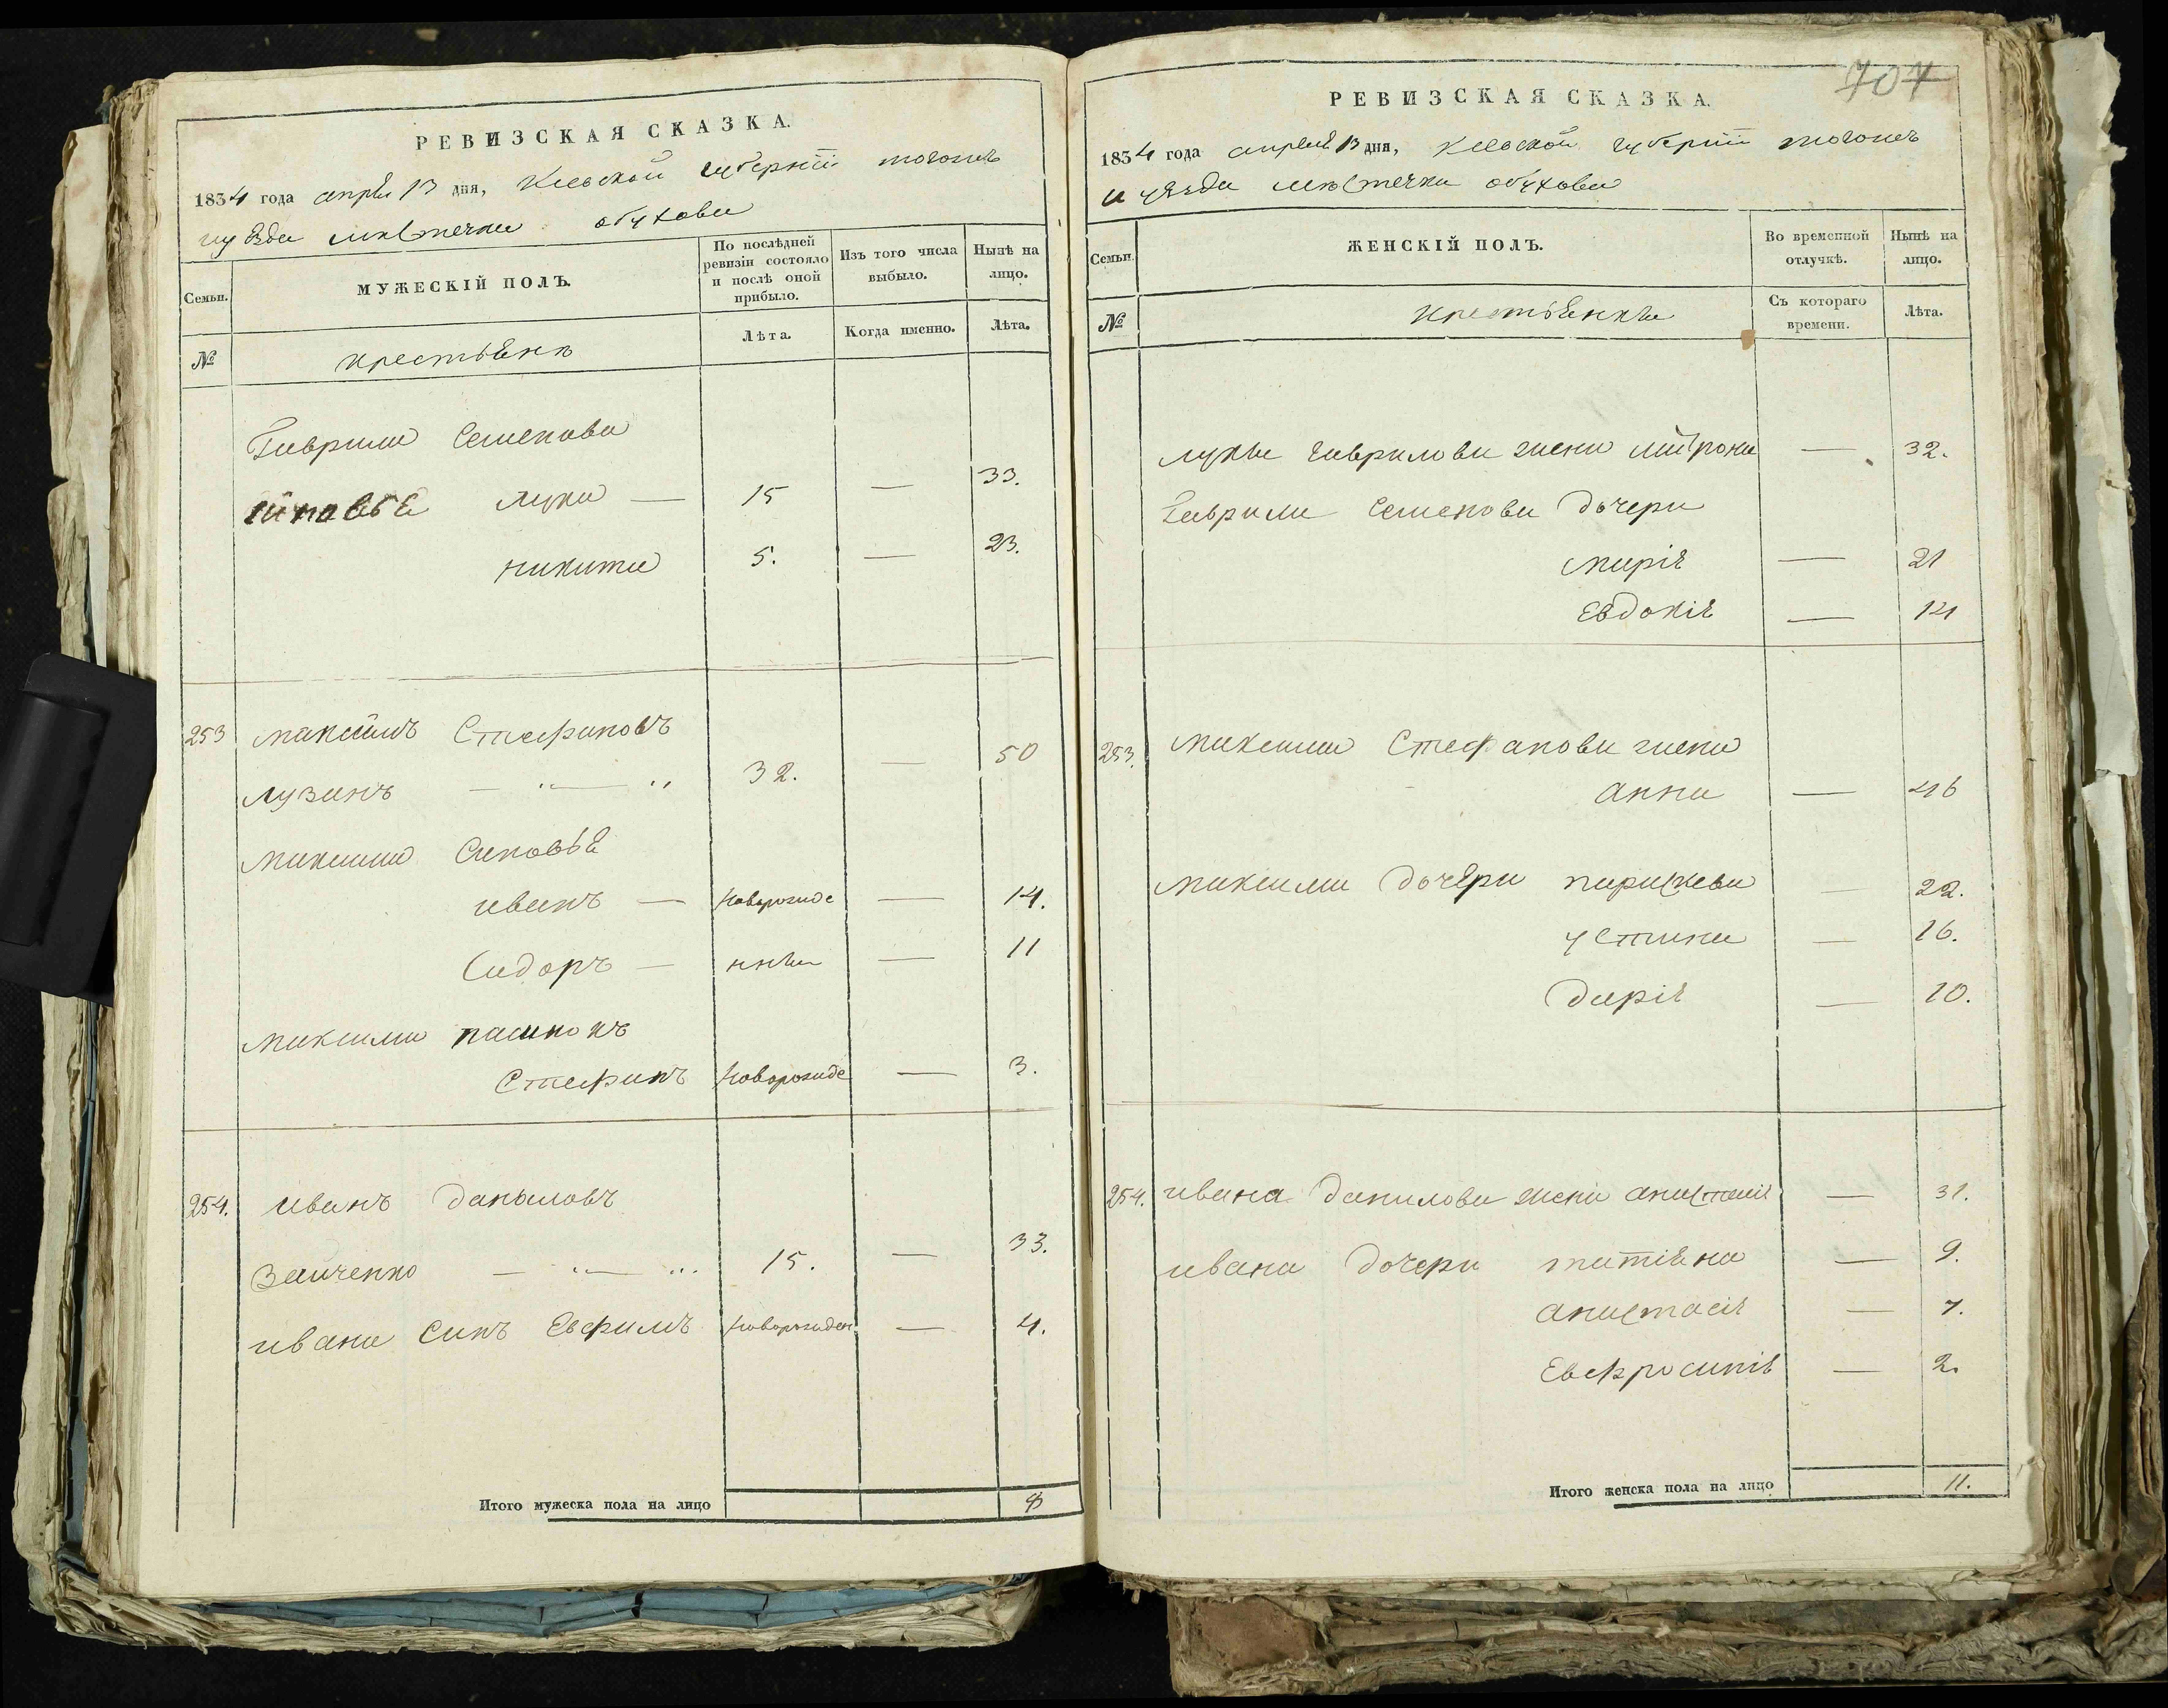 РЕВИЗСКАЯ СКАЗКА.
1834 года апреля 13 дня, Киевской губернiи тогожъ
и уѣзда мѣстечка обухова
Семьи.
МУЖЕСКІЙ ПОЛЪ.
По послѣдней ревизіи состояло и послѣ оной прибыло.
Изъ того числа выбыло.
Нынѣ на лицо.
№
крестьянъ
Лѣта.
Когда именно.
Лѣта.
Гаврила Семенова
синовья лука — 15 — 33.
никита 5. — 23.
253 максимъ Стефановъ
лузанъ — „ — „ 32. — 50
максима Синовья
иванъ — новорожде — 14.
Сидоръ — ннѣи — 11
максима пасинокъ
Стефанъ новорожде — 3.
254. иванъ даниловъ
Заиченко — „ — „ 15. — 33.
ивана Синъ Евфимъ новорожден — 4.
Итого мужеска пола на лицо 8
707
РЕВИЗСКАЯ СКАЗКА.
1834 года апреля 13 дня, Киевской губернiи тогожъ
и уѣзда мѣстечка обухова
Семьи.
ЖЕНСКІЙ ПОЛЪ.
Во временной отлучкѣ.
Нынѣ на лицо.
№
крестьянки
Съ котораго времени.
Лѣта.
луки гаврилова жена митрона — 32.
Гаврила Семенова дочери
марія — 21
Евдокія — 14
253. максима Стефанова жена
анна — 46
максима дочери параскева — 22.
устина — 16.
дарія — 10.
254. ивана данилова жена анастасія — 31.
ивана дочери татіяна — 9.
анастасія — 7.
Евфросинія — 2.
Итого женска пола на лицо 11.